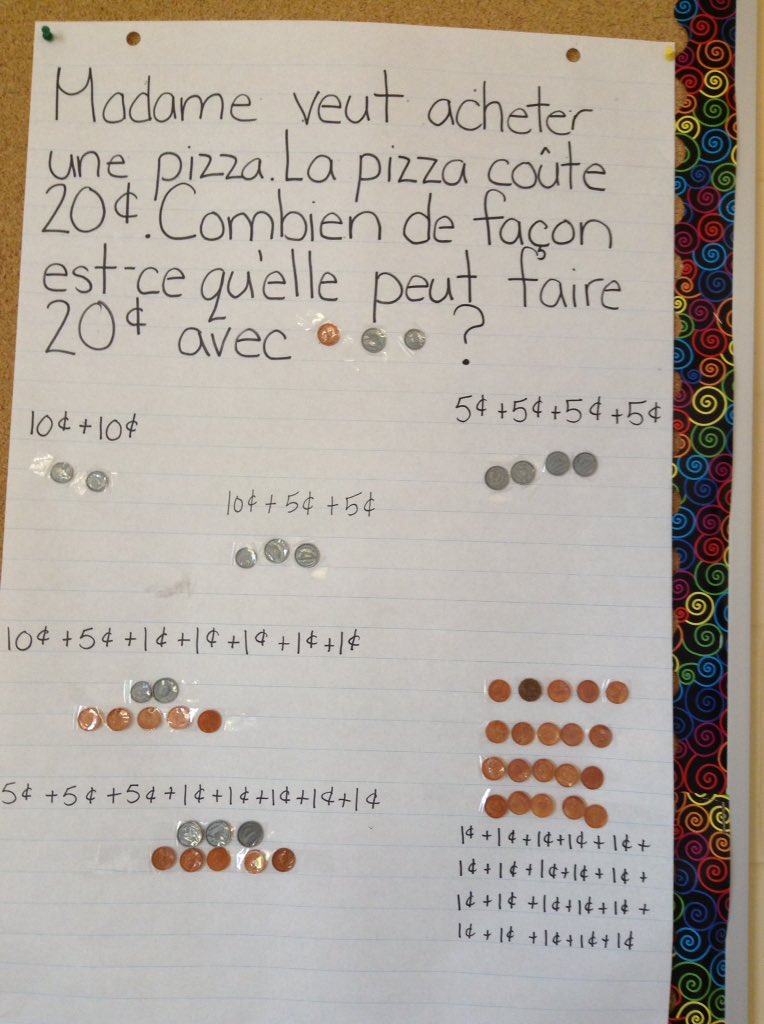 Madame veut acheter
une pizza. La pizza coûte
20¢. Combien de façon
est-ce qu'elle peut faire
20¢ avec ?
5¢ + 5¢ + 5¢ + 5¢
10¢ + 10¢
10¢ + 5¢ + 5¢
10¢ + 5¢ + 1¢ + 1¢ + 1¢ + 1¢ + 1¢
5¢ + 5¢ + 5¢ + 1¢ + 1¢ + 1¢ + 1¢ + 1¢
1¢ + 1¢ + 1¢ + 1¢ + 1¢ +
1¢ + 1¢ + 1¢ + 1¢ + 1¢ +
1¢ + 1¢ + 1¢ + 1¢ + 1¢ +
1¢ + 1¢ + 1¢ + 1¢ + 1¢